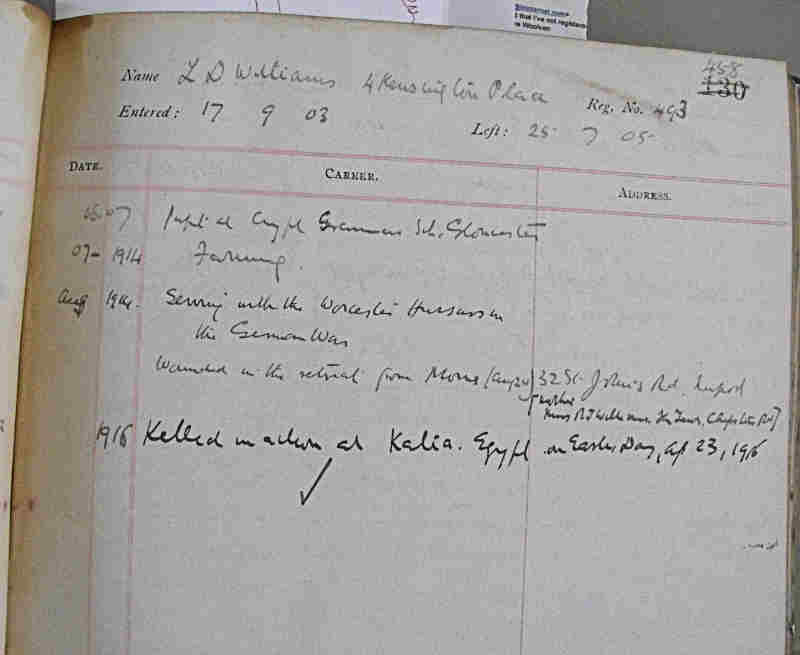 internet.com>
t that I've not registere
s Woolven
458
130
Name L D Williams 4 Kensington Place Reg. No. 493
Entered: 17 9 03 Left: 25 7 05
DATE. CAREER. ADDRESS.
05-07 Pupil at Crypt Grammar Sch. Gloucester
07- 1914 Farming.
Aug 1914. Serving with the Worcester Hussars in
the German War
Wounded in the retreat from Mons (Aug 24) 32 St. John's Rd. Newport
mother
Mrs R J Williams, The Firs, Chepstow Rd]
1916 Killed in action at Katia. Egypt on Easter Day, Ap 23, 1916